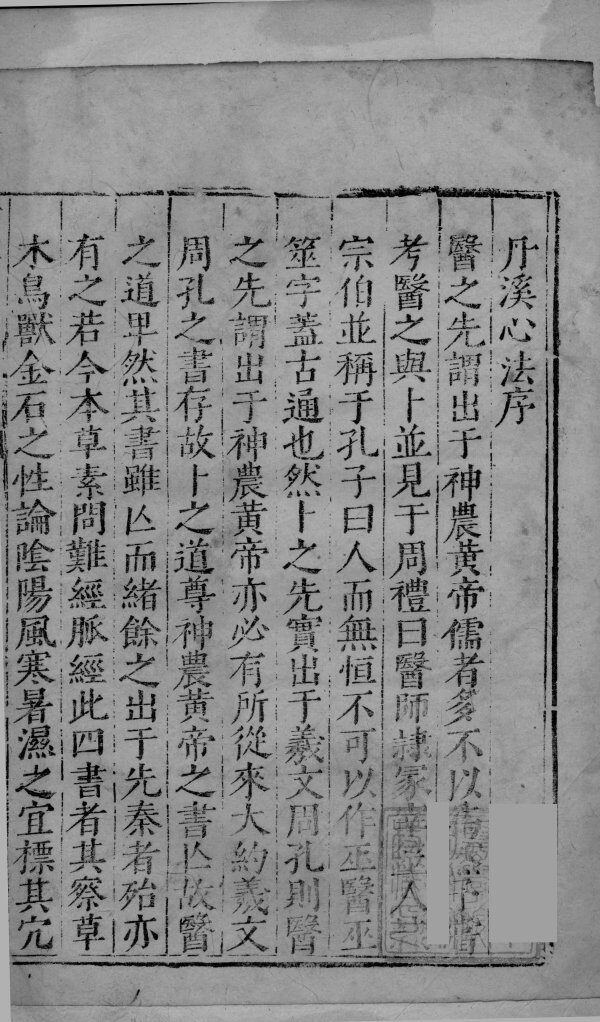 丹溪心法序
醫之先謂出于神農黃帝儒者多不以為然予嘗
考醫之與卜並見于周禮曰醫師隷冢宰筮人隷
宗伯並稱于孔子曰人而無恒不可以作巫醫巫
筮字蓋古通也然卜之先實出于羲文周孔則醫
之先謂出于神農黃帝亦必有所從來大約羲文
周孔之書存故卜之道尊神農黃帝之書亾故醫
之道卑然其書雖亾而緒餘之出于先秦者殆亦
有之若今本草素問難經脈經此四書者其察草
木鳥獸金石之性論陰陽風寒暑濕之宜標其穴